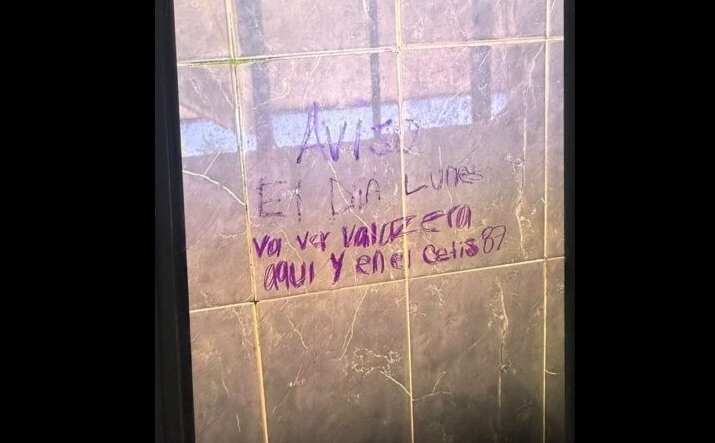 AVISO
El DIA LUNES
va ver balacera
aqui y en el Cetis 87